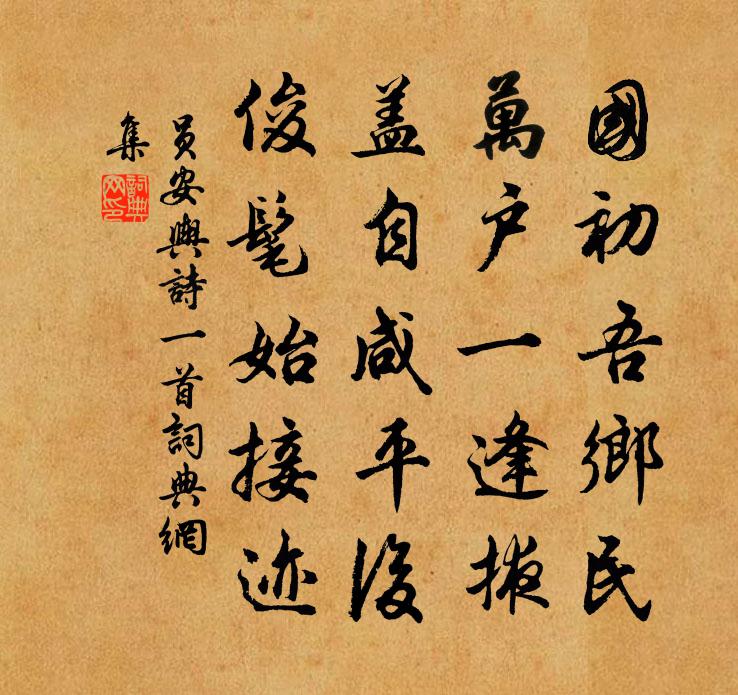 國初吾鄉民
萬户一逢掖
盖自咸平後
俊髦始接迹
員安輿詩一首詞典網
集
詞典
网印